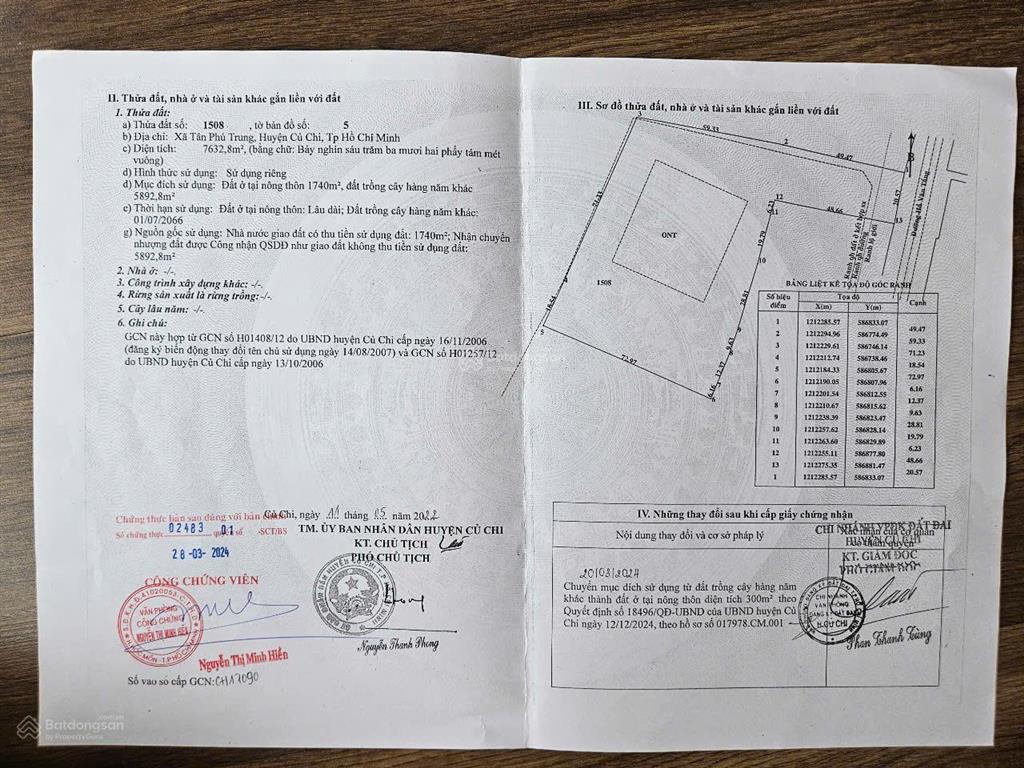 II. Thửa đất, nhà ở và tài sản khác gắn liền với đất
1. Thửa đất:
a) Thửa đất số: 1508 , tờ bản đồ số: 5
b) Địa chỉ: Xã Tân Phú Trung, Huyện Củ Chi, Tp Hồ Chí Minh
c) Diện tích: 7632,8m², (bằng chữ: Bảy nghìn sáu trăm ba mươi hai phẩy tám mét
vuông)
d) Hình thức sử dụng: Sử dụng riêng
đ) Mục đích sử dụng: Đất ở tại nông thôn 1740m², đất trồng cây hàng năm khác
5892,8m²
e) Thời hạn sử dụng: Đất ở tại nông thôn: Lâu dài; Đất trồng cây hàng năm khác:
01/07/2066
g) Nguồn gốc sử dụng: Nhà nước giao đất có thu tiền sử dụng đất: 1740m²; Nhận chuyển
nhượng đất được Công nhận QSDĐ như giao đất không thu tiền sử dụng đất:
5892,8m²
2. Nhà ở: -/-.
3. Công trình xây dựng khác: -/-.
4. Rừng sản xuất là rừng trồng:-/-.
5. Cây lâu năm: -/-.
6. Ghi chú:
GCN này hợp từ GCN số H01408/12 do UBND huyện Củ Chi cấp ngày 16/11/2006
(đăng ký biến động thay đổi tên chủ sử dụng ngày 14/08/2007) và GCN số H01257/12
do UBND huyện Củ Chi cấp ngày 13/10/2006
Chứng thực bản sao đúng với bản chính
Số chứng thực 02483 quyển số 01 -SCT/BS
28-03-2024
CÔNG CHỨNG VIÊN
VĂN PHÒNG
CÔNG CHỨNG
NGUYỄN THỊ MINH HIỀN
Nguyễn Thị Minh Hiền
Củ Chi, ngày 11 tháng 05 năm 2022
TM. ỦY BAN NHÂN DÂN HUYỆN CỦ CHI
KT. CHỦ TỊCH
PHÓ CHỦ TỊCH
Nguyễn Thanh Phong
Số vào sổ cấp GCN: CH17090
III. Sơ đồ thửa đất, nhà ở và tài sản khác gắn liền với đất
3
59.33
2
49.47
B
20.57
Đường Hồ Văn Tắng
71.23
12
6.23
11
48.66
13
19.79
ONT
10
Ranh qh đất ở kết hợp sx
Ranh qh đường
Ranh lộ giới
1508
4
28.81
18.54
5
9.63
72.97
12.37
6.16
6
BẢNG LIỆT KÊ TỌA ĐỘ GÓC RANH
Số hiệu điểm Tọa độ Cạnh
X(m) Y(m)
1 1212285.57 586833.07
49.47
2 1212294.96 586774.49
59.33
3 1212229.61 586746.14
71.23
4 1212212.74 586738.46
18.54
5 1212184.33 586805.67
72.97
6 1212190.05 586807.96
6.16
7 1212201.54 586812.55
12.37
8 1212210.67 586815.62
9.63
9 1212238.39 586823.47
28.81
10 1212257.62 586828.14
19.79
11 1212263.60 586829.89
6.23
12 1212255.11 586877.80
48.66
13 1212275.35 586881.47
20.57
1 1212285.57 586833.07
IV. Những thay đổi sau khi cấp giấy chứng nhận
Nội dung thay đổi và cơ sở pháp lý
Xác nhận của cơ quan
có thẩm quyền
CHI NHÁNH VPĐK ĐẤT ĐAI
HUYỆN CỦ CHI
KT. GIÁM ĐỐC
PHÓ GIÁM ĐỐC
Chuyển mục đích sử dụng từ đất trồng cây hàng năm
khác thành đất ở tại nông thôn diện tích 300m² theo
Quyết định số 18496/QĐ-UBND của UBND huyện Củ
Chi ngày 12/12/2024, theo hồ sơ số 017978.CM.001
CHI NHÁNH
VĂN PHÒNG
ĐĂNG KÝ ĐẤT ĐAI
H.CỦ CHI
Phan Thanh Tùng
Batdongsan
by PropertyGuru